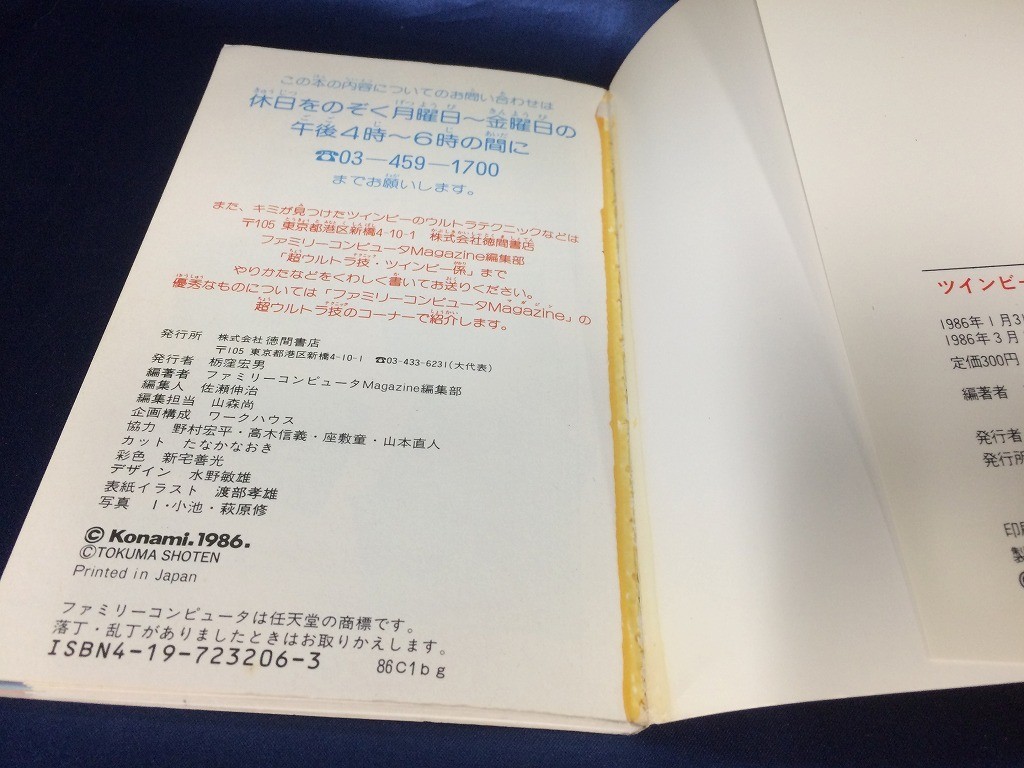 この本の内容についてのお問い合わせは
休日をのぞく月曜日～金曜日の
午後4時～6時の間に
☎03—459—1700
までお願いします。
また、キミが見つけたツインビーのウルトラテクニックなどは
〒105 東京都港区新橋4-10-1 株式会社徳間書店
ファミリーコンピュータMagazine編集部
「超ウルトラ技・ツインビー係」まで
やりかたなどをくわしく書いてお送りください。
優秀なものについては「ファミリーコンピュータMagazine」の
超ウルトラ技のコーナーで紹介します。
発行所 株式会社徳間書店
〒105 東京都港区新橋4-10-1 ☎03-433-6231(大代表)
発行者 栃窪宏男
編著者 ファミリーコンピュータMagazine編集部
編集人 佐瀬伸治
編集担当 山森尚
企画構成 ワークハウス
協力 野村宏平・高木信義・座敷童・山本直人
カット たなかなおき
彩色 新宅善光
デザイン 水野敏雄
表紙イラスト 渡部孝雄
写真 I・小池・萩原修
© Konami.1986.
©TOKUMA SHOTEN
Printed in Japan
ファミリーコンピュータは任天堂の商標です。
落丁・乱丁がありましたときはお取りかえします。
ISBN4-19-723206-3 86C1bg
ツインビー
1986年1月3
1986年3月
定価300円
編著者
発行者
発行所
印
製
©